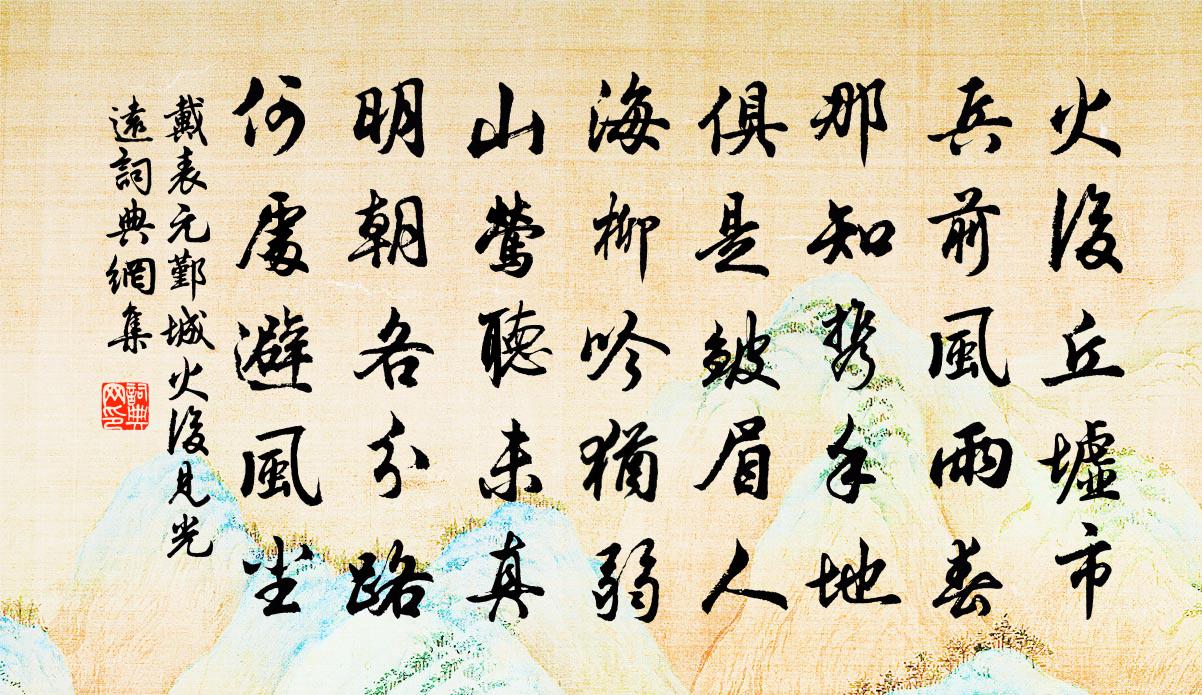 火後丘墟市
兵前風雨春
那知携手地
俱是皺眉人
海柳吟猶弱
山鶯聽未真
明朝各分路
何處避風尘
戴表元鄞城火後見光
遠詞典網集
詞典网印